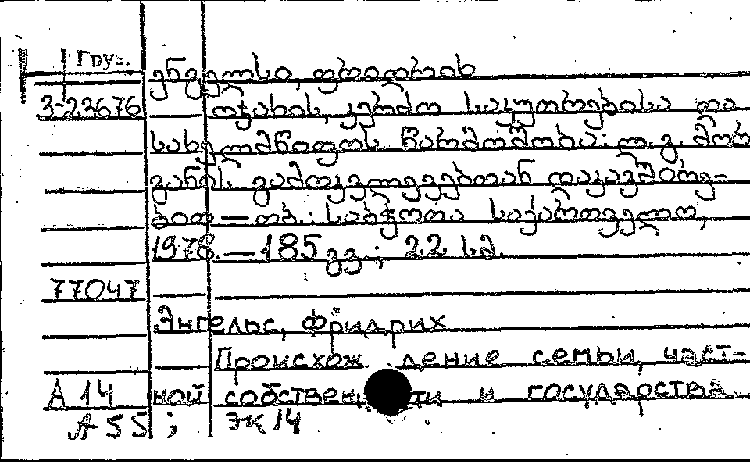 Груз.
ენგელსი, ფრიდრიხ
3-22676 ოჯახის, კერძო საკუთრებისა და
სახელმწიფოს წარმოშობა: ლ. გ. მორ
განის გამოკვლევებთან დაკავშირე-
ბით — თბ.: საბჭოთა საქართველო,
1978. — 185 გვ.; 22 სმ.
77047
Энгельс, Фридрих
Происхож дение семьи, част-
А 14 ной собствен ти и государства.
А 55 ; ЭК 14